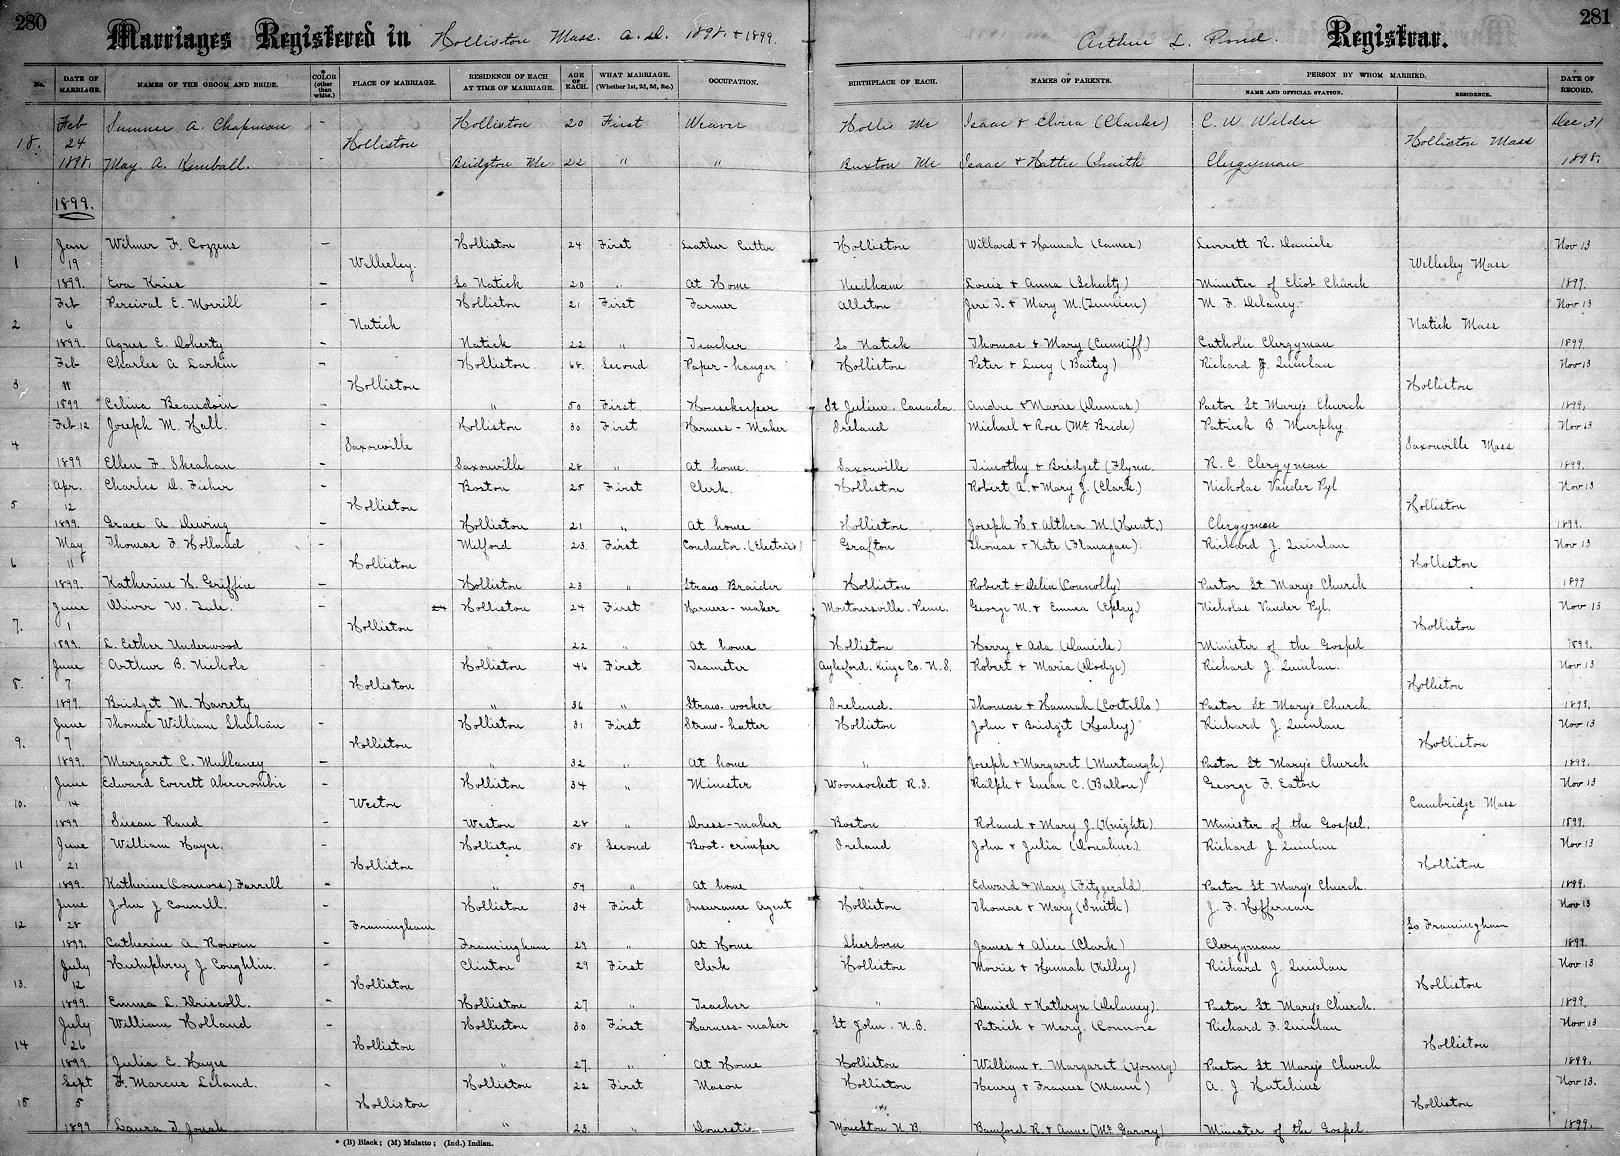 280
Marriages Registered in Holliston Mass. A.D. 1898. & 1899.
Arthur L. Pond. Registrar.
281
No. DATE OF MARRIAGE. NAMES OF THE GROOM AND BRIDE. * COLOR (other than white.) PLACE OF MARRIAGE. RESIDENCE OF EACH AT TIME OF MARRIAGE. AGE OF EACH. WHAT MARRIAGE. (Whether 1st, 2d, 3d, &c.) OCCUPATION. BIRTHPLACE OF EACH. NAMES OF PARENTS. PERSON BY WHOM MARRIED. NAME AND OFFICIAL STATION. RESIDENCE. DATE OF RECORD.
Feb Sumner A. Chapman - Holliston 20 First Weaver Hollis Me Isaac & Elvira (Clarke) C. W. Wilder Dec 31
18. 24 Holliston Holliston Mass
1898. May A. Kimball. - Bridgton Me 22 " " Buxton Me Isaac & Hattie (Smith Clergyman 1898.
1899.
Jan Wilmer F. Cozzens - Holliston 24 First Leather Cutter Holliston Willard & Hannah (Eames) Leverett R. Daniels Nov 13
1 19 Wellesley. Wellesley Mass
1899. Eva Kries - So Natick 20 " At Home Needham Louis & Anna (Schultz) Minister of Eliot Church 1899.
Feb Percival E. Morrill - Holliston 21 First Farmer Allston Jere T. & Mary M. M. F. Delaney. Nov 13
2 6 Natick Natick Mass
1899. Agnes E. Doherty - Natick 22 " Teacher So Natick Thomas & Mary (Cunniff) Catholic Clergyman 1899.
Feb Charles A Larkin - Holliston. 68. Second Paper-hanger Holliston Peter & Lucy (Bailey) Richard J. Quinlan Nov 13
3 11 Holliston Holliston
1899. Celina Beaudoin - " 50 First Housekeeper St Julien. Canada. Andre & Marie (Dumas) Pastor St Mary's Church 1899.
Feb 12 Joseph M. Hall. - Holliston 30 First Harness-Maker Ireland Michael & Rose (McBride) Patrick B Murphy. Nov 13
4 Saxonville Saxonville Mass
1899 Ellen F. Sheahan - Saxonville 28 " At home. Saxonville Timothy & Bridget (Flynn. R. C. Clergyman 1899.
Apr. Charles D. Fisher - Boston 25 First Clerk. Holliston Robert A. & Mary J. (Clark.) Nicholas Vander Pyl Nov 13
5 12 Holliston Holliston
1899. Grace A. Dewing - Holliston 21 " At home Holliston Joseph H. & Althea M. (Hunt.) Clergyman 1899.
May Thomas F. Holland - Milford 23 First Conductor. (Electrics) Grafton Thomas & Kate (Flanagan). Richard J. Quinlan Nov 13
6 11 Holliston Holliston
1899. Katherine H. Griffin - Holliston 23 " Straw Braider Holliston Robert & Delia (Connolly) Pastor St Mary's Church 1899
June Oliver W. - Holliston 24 First Harness-maker Montoursville. Penn. George M. & Emma (Epley) Nicholas Vander Pyl. Nov 13
7. 1 Holliston Holliston
1899. L. Esther Underwood " 22 " At home Holliston Harry & Ada (Daniels) Minister of the Gospel 1899.
June Arthur B. Nichols - Holliston 46 First Teamster Aylesford. Kings Co. N. S. Robert & Maria (Dodge) Richard J. Quinlan. Nov 13
8. 7 Holliston Holliston
1899. Bridget M. Haverty - " 36 " Straw-worker Ireland. Thomas & Hannah (Costello) Pastor St Mary's Church. 1899.
June Thomas William Sheehan - Holliston 31 First Straw-hatter Holliston John & Bridget (Healey) Richard J. Quinlan Nov 13
9. 7 Holliston Holliston
1899. Margaret C. Mullaney - " 32 " At home " Joseph & Margaret (Murtaugh) Pastor St Mary's Church 1899.
June Edward Everett Abercrombie - Holliston 34 " Minister Woonsocket R.I. Ralph & Susan C. (Ballou) George F. Eaton Nov 13
10. 14 Weston Cambridge Mass
1899. Susan Rand - Weston 28 " Dress-maker Boston Roland & Mary J. (Knights) Minister of the Gospel. 1899.
June William Hayes. - Holliston 58 Second Boot-crimper Ireland John & Julia (Donahue.) Richard J. Quinlan Nov 13
11 21 Holliston Holliston
1899. Katherine (Connors) Farrell - " 54 " At home " Edward & Mary (Fitzgerald) Pastor St Mary's Church. 1899.
June John J Connell. - Holliston 34 First Insurance Agent Holliston Thomas & Mary (Smith) J. F. Heffernan Nov 13
12 28 Framingham So Framingham
1899. Catherine A. Rowan - Framingham 29 " At Home Sherborn James & Alice (Clark) Clergyman 1899.
July Humphrey J. Coughlin. - Clinton 29 First Clerk Holliston Morris & Hannah (Kelley) Richard J. Quinlan Nov 13
13. 12 Holliston Holliston
1899. Emma L. Driscoll. - Holliston 27 " Teacher " Daniel & Kathryn (Delaney). Pastor St Mary's Church. 1899.
July William Holland - Holliston 30 First Harness-maker St John. N.B. Patrick & Mary. (Connors Richard F. Quinlan Nov 13
14 26 Holliston Holliston
1899. Julia E. Hayes - " 27. " At Home Holliston William & Margaret (Young) Pastor St Mary's Church 1899.
Sept F. Marcus Leland. - Holliston 22 First Mason Holliston Henry & Frances (Mann) A. J. Hutchins Nov 13.
15 5 Holliston Holliston
1899 Laura J. " 23. " Domestic Moncton N.B. Bamford R. & Anne (McGarvey) Minister of the Gospel. 1899.
* (B) Black; (M) Mulatto; (Ind.) Indian.